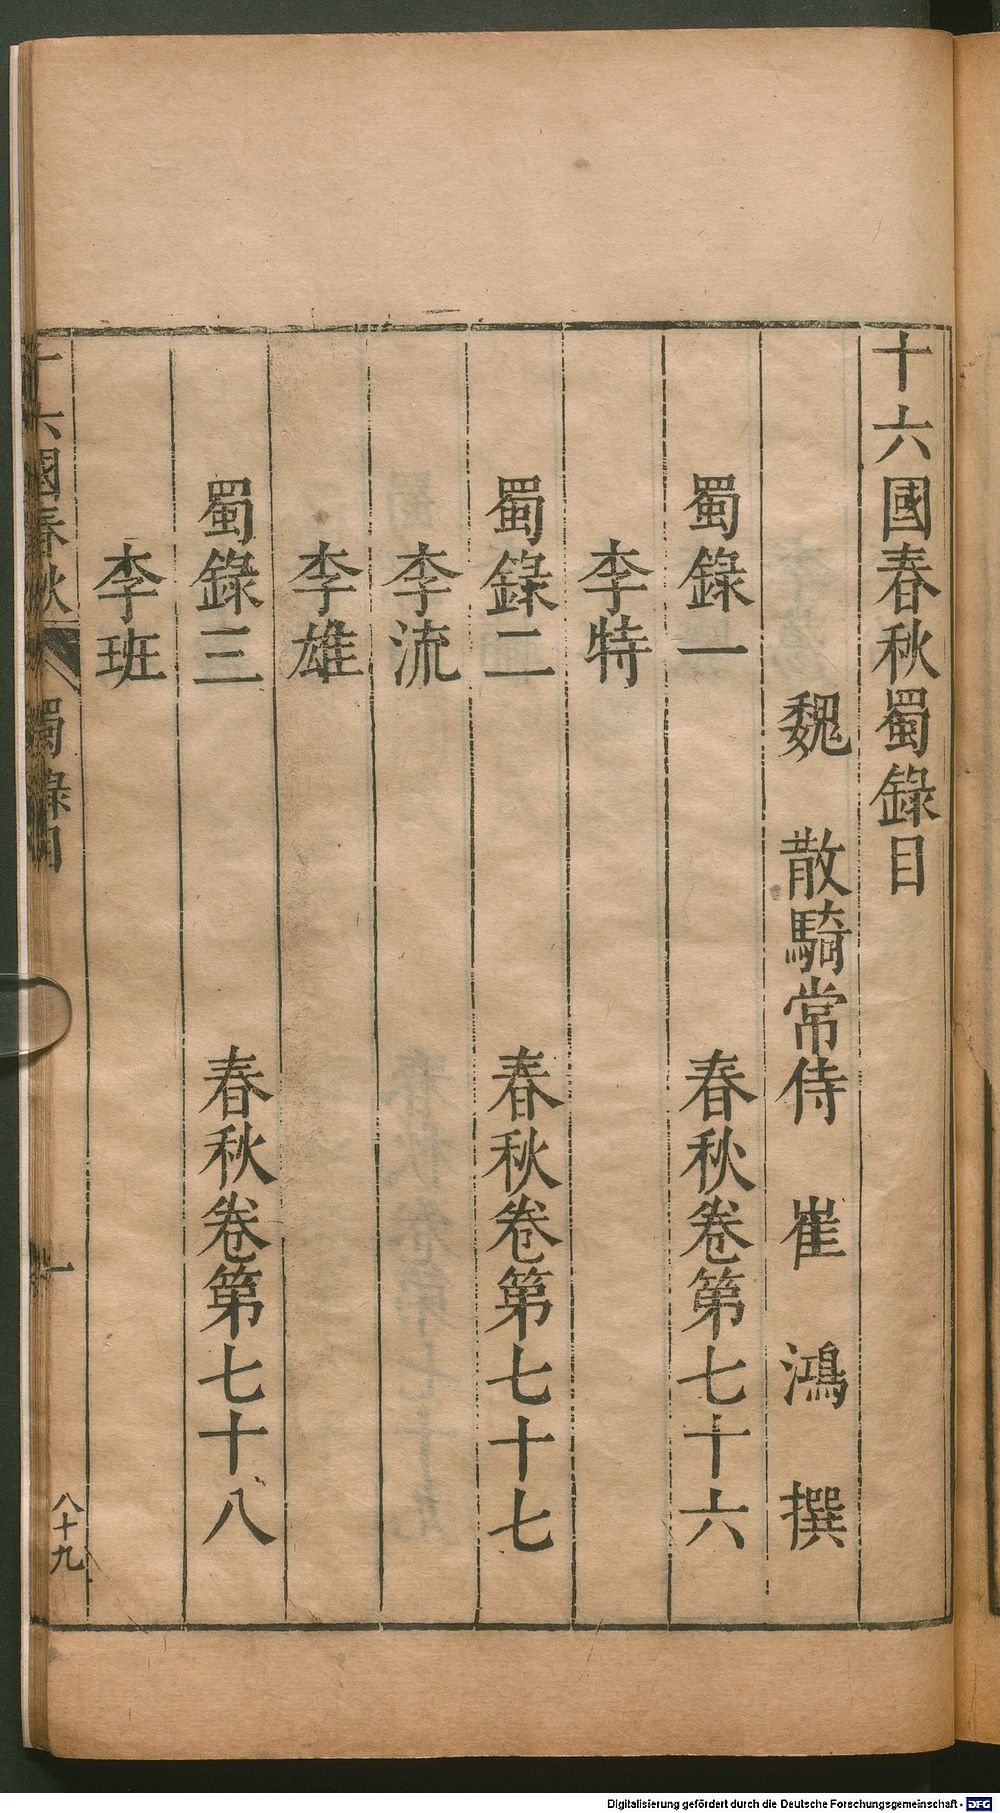 十六國春秋蜀錄目
魏 散騎常侍 崔 鴻 撰
蜀錄一 春秋卷第七十六
李特
蜀錄二 春秋卷第七十七
李流
李雄
蜀錄三 春秋卷第七十八
李班
十六國春秋 蜀錄目 一 八十九
Digitalisierung gefördert durch die Deutsche Forschungsgemeinschaft - DFG